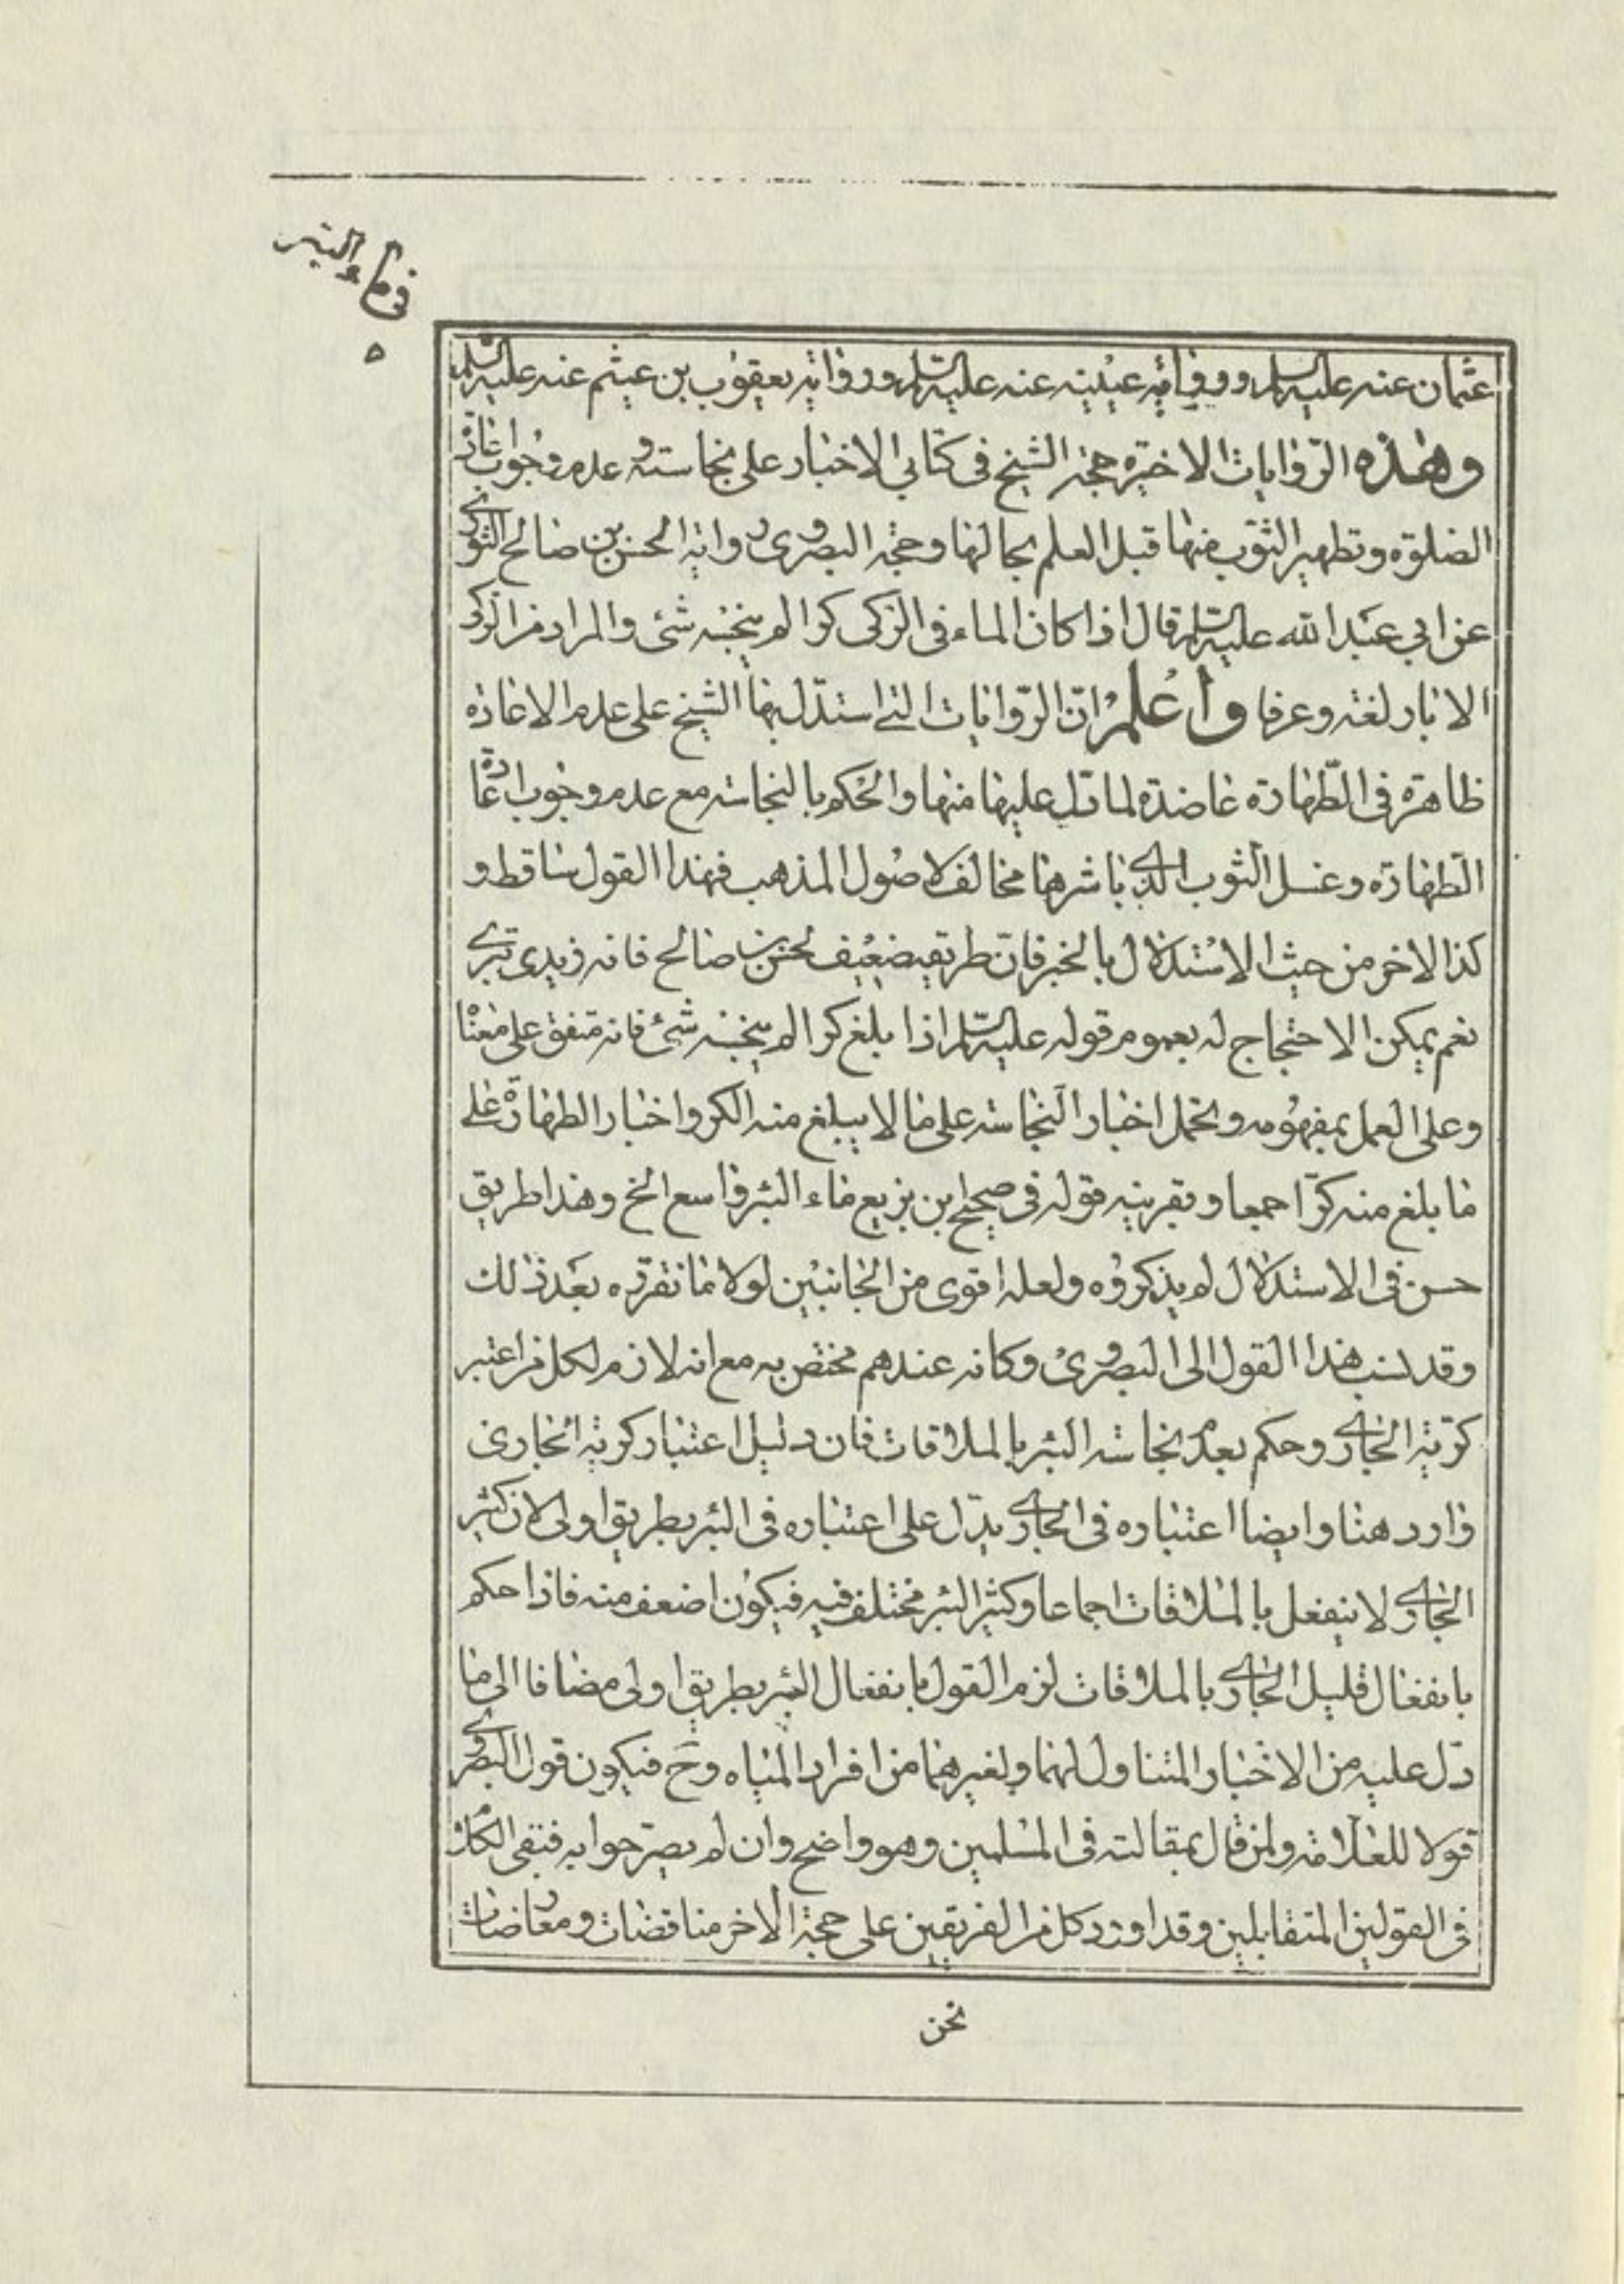 في ماء البئر
٥
عثمان عنه عليه السلم ورواية عيينه عنه عليه السلم ورواية يعقوب بن عيثم عنه عليه السلم
وهذه الروايات الاخيرة حجة الشيخ في كتابي الاخبار على نجاسته وعدم وجوب اعادة
الصلوة وتطهير الثوب منها قبل العلم بحالها وحجة البصروى رواية الحسن بن صالح الثورى
عن ابي عبد الله عليه السلم قال اذا كان الماء في الركى كرا لم ينجسه شئ والمراد من الركى
الابار لغة وعرفا واعلم ان الروايات التى استدل بها الشيخ على عدم الاعادة
ظاهرة في الطهارة عاضدة لما دل عليها منها والحكم بالنجاسة مع عدم وجوب اعادة
الطهارة وغسل الثوب الذى باشرها مخالف لاصول المذهب فهذا القول ساقط و
كذا الاخر من حيث الاستدلال بالخبر فان طريقه ضعيف لحسن بن صالح فانه زيدى تبرى
نعم يمكن الاحتجاج له بعموم قوله عليه السلم اذا بلغ كرا لم ينجسه شئ فانه متفق على معناه
وعلى العمل بمفهومه وتحمل اخبار النجاسة على ما لا يبلغ منه الكر واخبار الطهارة على
ما بلغ منه كرا جمعا وبقرينة قوله في صحيح ابن بزيع ماء البئر واسع الخ وهذا طريق
حسن في الاستدلال لم يذكروه ولعله اقوى من الجانبين لولا ما نقرره بعد ذلك
وقد نسب هذا القول الى البصروى وكانه عندهم مختص به مع انه لازم لكل من اعتبر
كرية الجارى وحكم بعدم نجاسة البئر بالملاقات فان دليل اعتبار كرية الجارى
وارد هنا وايضا اعتباره في الجارى يدل على اعتباره في البئر بطريق اولى لان كثير
الجارى لا ينفعل بالملاقات اجماعا وكثير البئر مختلف فيه فيكون اضعف منه فاذا حكم
بانفعال قليل الجارى بالملاقات لزم القول بانفعال البئر بطريق اولى مضافا الى ما
دل عليه من الاخبار المتناول لهما ولغيرهما من افراد المياه وح فيكون قول البصروى
قولا للعلامة ولمن قال بمقالته في المسلمين وهو واضح وان لم يصرحوا به فبقى الكلام
في القولين المتقابلين وقد اورد كل من الفريقين على حجة الاخر مناقضات ومعارضات
نحن